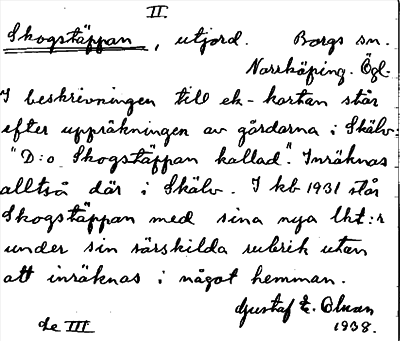 II.
Skogstäppan, utjord. Borgs sn.
Norrköping. Ögl.
I beskrivningen till ek-kartan står
efter uppräkningen av gårdarna i Skälv:
"D:o Skogstäppan kallad". Inräknas
alltså där i Skälv. I kb 1931 står
Skogstäppan med sina nya lht:r
under sin särskilda rubrik utan
att inräknas i något hemman.
Gustaf E. Olsson
1938.
de III